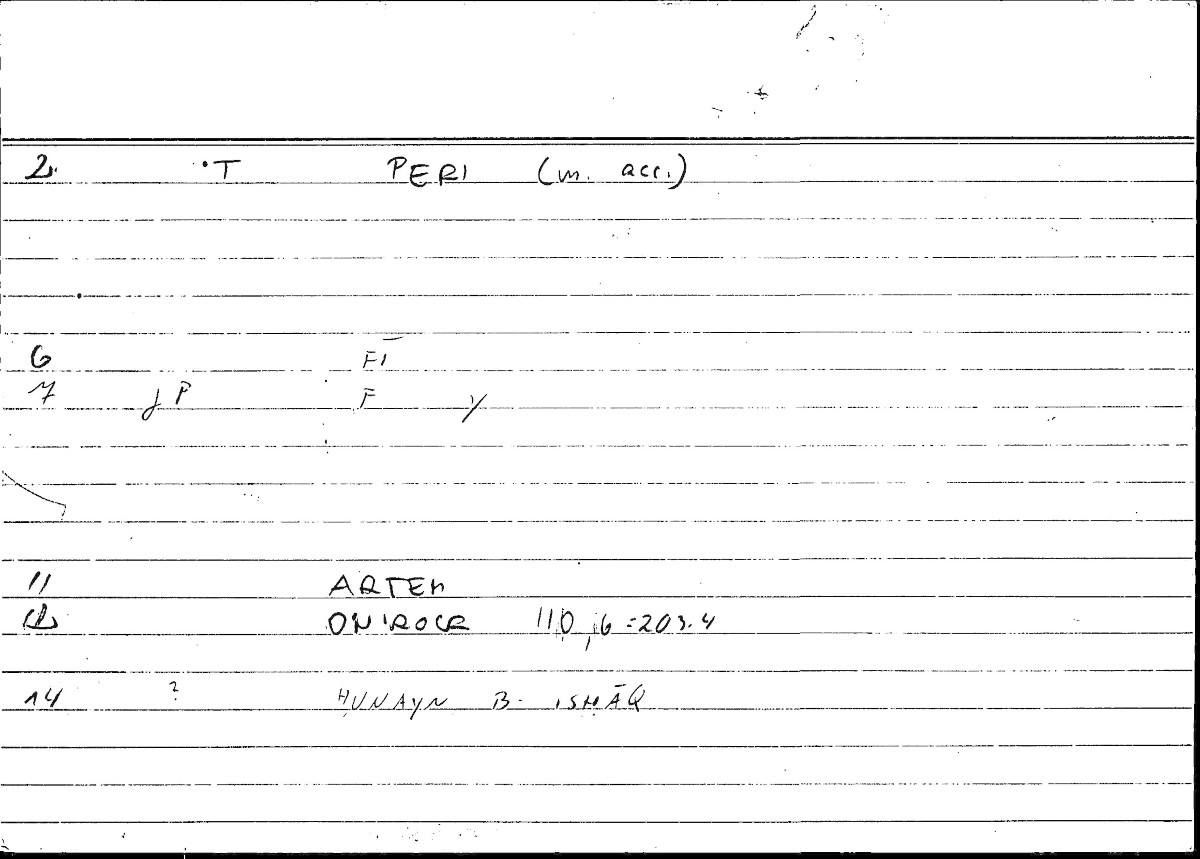 2. •T PERI (m. acc.)
6 FĪ
7 jP F y
11 ARTEM
12 ONIROCR 110,16=203.4
14 ? ḤUNAYN B. ISḤĀQ